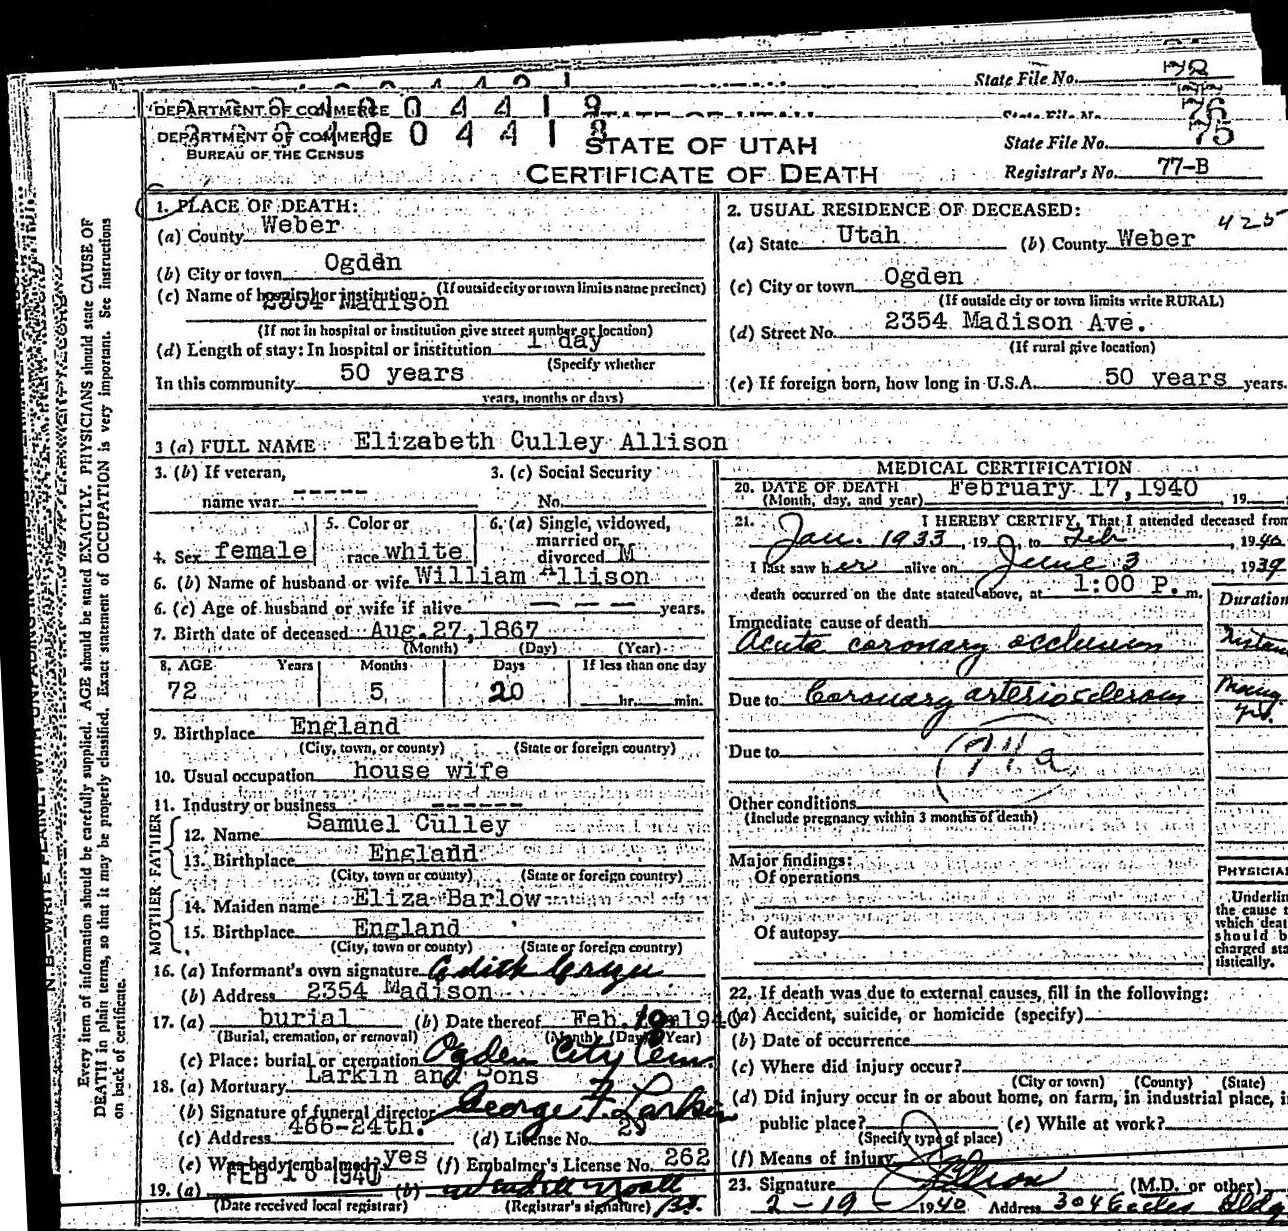 State File No. 78
DEPARTMENT OF COMMERCE 0 4 4 1 9 STATE OF UTAH State File No. 76
DEPARTMENT OF COMMERCE 0 0 4 4 1 8 STATE OF UTAH State File No. 75
BUREAU OF THE CENSUS
CERTIFICATE OF DEATH Registrar's No. 77-B
1. PLACE OF DEATH:
(a) County Weber
(b) City or town Ogden
(If outside city or town limits name precinct)
(c) Name of hospital or institution: 2354 Madison
(If not in hospital or institution give street number or location)
(d) Length of stay: In hospital or institution 1 day
(Specify whether
In this community 50 years
years, months or days)
2. USUAL RESIDENCE OF DECEASED: 425
(a) State Utah (b) County Weber
(c) City or town Ogden
(If outside city or town limits write RURAL)
(d) Street No. 2354 Madison Ave.
(If rural give location)
(e) If foreign born, how long in U.S.A. 50 years years.
3 (a) FULL NAME Elizabeth Culley Allison
3. (b) If veteran, 3. (c) Social Security
name war ----- No.
4. Sex female 5. Color or race white 6. (a) Single, widowed, married or divorced M
6. (b) Name of husband or wife William Allison
6. (c) Age of husband or wife if alive --- years.
7. Birth date of deceased Aug. 27, 1867
(Month) (Day) (Year)
8. AGE Years Months Days If less than one day
72 5 20 hr. min.
9. Birthplace England
(City, town, or county) (State or foreign country)
10. Usual occupation house wife
11. Industry or business ------
FATHER
12. Name Samuel Culley
13. Birthplace England
(City, town or county) (State or foreign country)
MOTHER
14. Maiden name Eliza Barlow
15. Birthplace England
(City, town or county) (State or foreign country)
16. (a) Informant's own signature Edith
(b) Address 2354 Madison
17. (a) burial (b) Date thereof Feb. 1940
(Burial, cremation, or removal) (Month) (Day) (Year)
(c) Place: burial or cremation Ogden City Cem.
18. (a) Mortuary Larkin and Sons
(b) Signature of funeral director George F. Larkin
(c) Address 466-24th. (d) License No. 25
(e) Was body embalmed? yes (f) Embalmer's License No. 262
19. (a) FEB 1940 (b)
(Date received local registrar) (Registrar's signature)
MEDICAL CERTIFICATION
20. DATE OF DEATH February 17, 1940
(Month, day, and year) , 19
21. I HEREBY CERTIFY, That I attended deceased from
Jan. 1933, 19 to Feb , 1940
I last saw her alive on June 3 , 1939
death occurred on the date stated above, at 1:00 P. m.
Duration
Immediate cause of death
Acute coronary occlusion
Due to Coronary arteriosclerosis Many yrs.
Due to 94a
Other conditions
(Include pregnancy within 3 months of death)
Major findings:
Of operations
Of autopsy
PHYSICIAN
Underlin
the cause t
which deat
should b
charged sta
tistically.
22. If death was due to external causes, fill in the following:
(a) Accident, suicide, or homicide (specify)
(b) Date of occurrence
(c) Where did injury occur?
(City or town) (County) (State)
(d) Did injury occur in or about home, on farm, in industrial place, i
public place? (e) While at work?
(Specify type of place)
(f) Means of injury
23. Signature (M.D. or other)
2-19-1940 Address 304 Eccles Bldg
N.B. WRITE PLAINLY WITH UNFADING INK
Every item of information should be carefully supplied. AGE should be stated EXACTLY. PHYSICIANS should state CAUSE OF
DEATH in plain terms, so that it may be properly classified. Exact statement of OCCUPATION is very important. See instructions
on back of certificate.